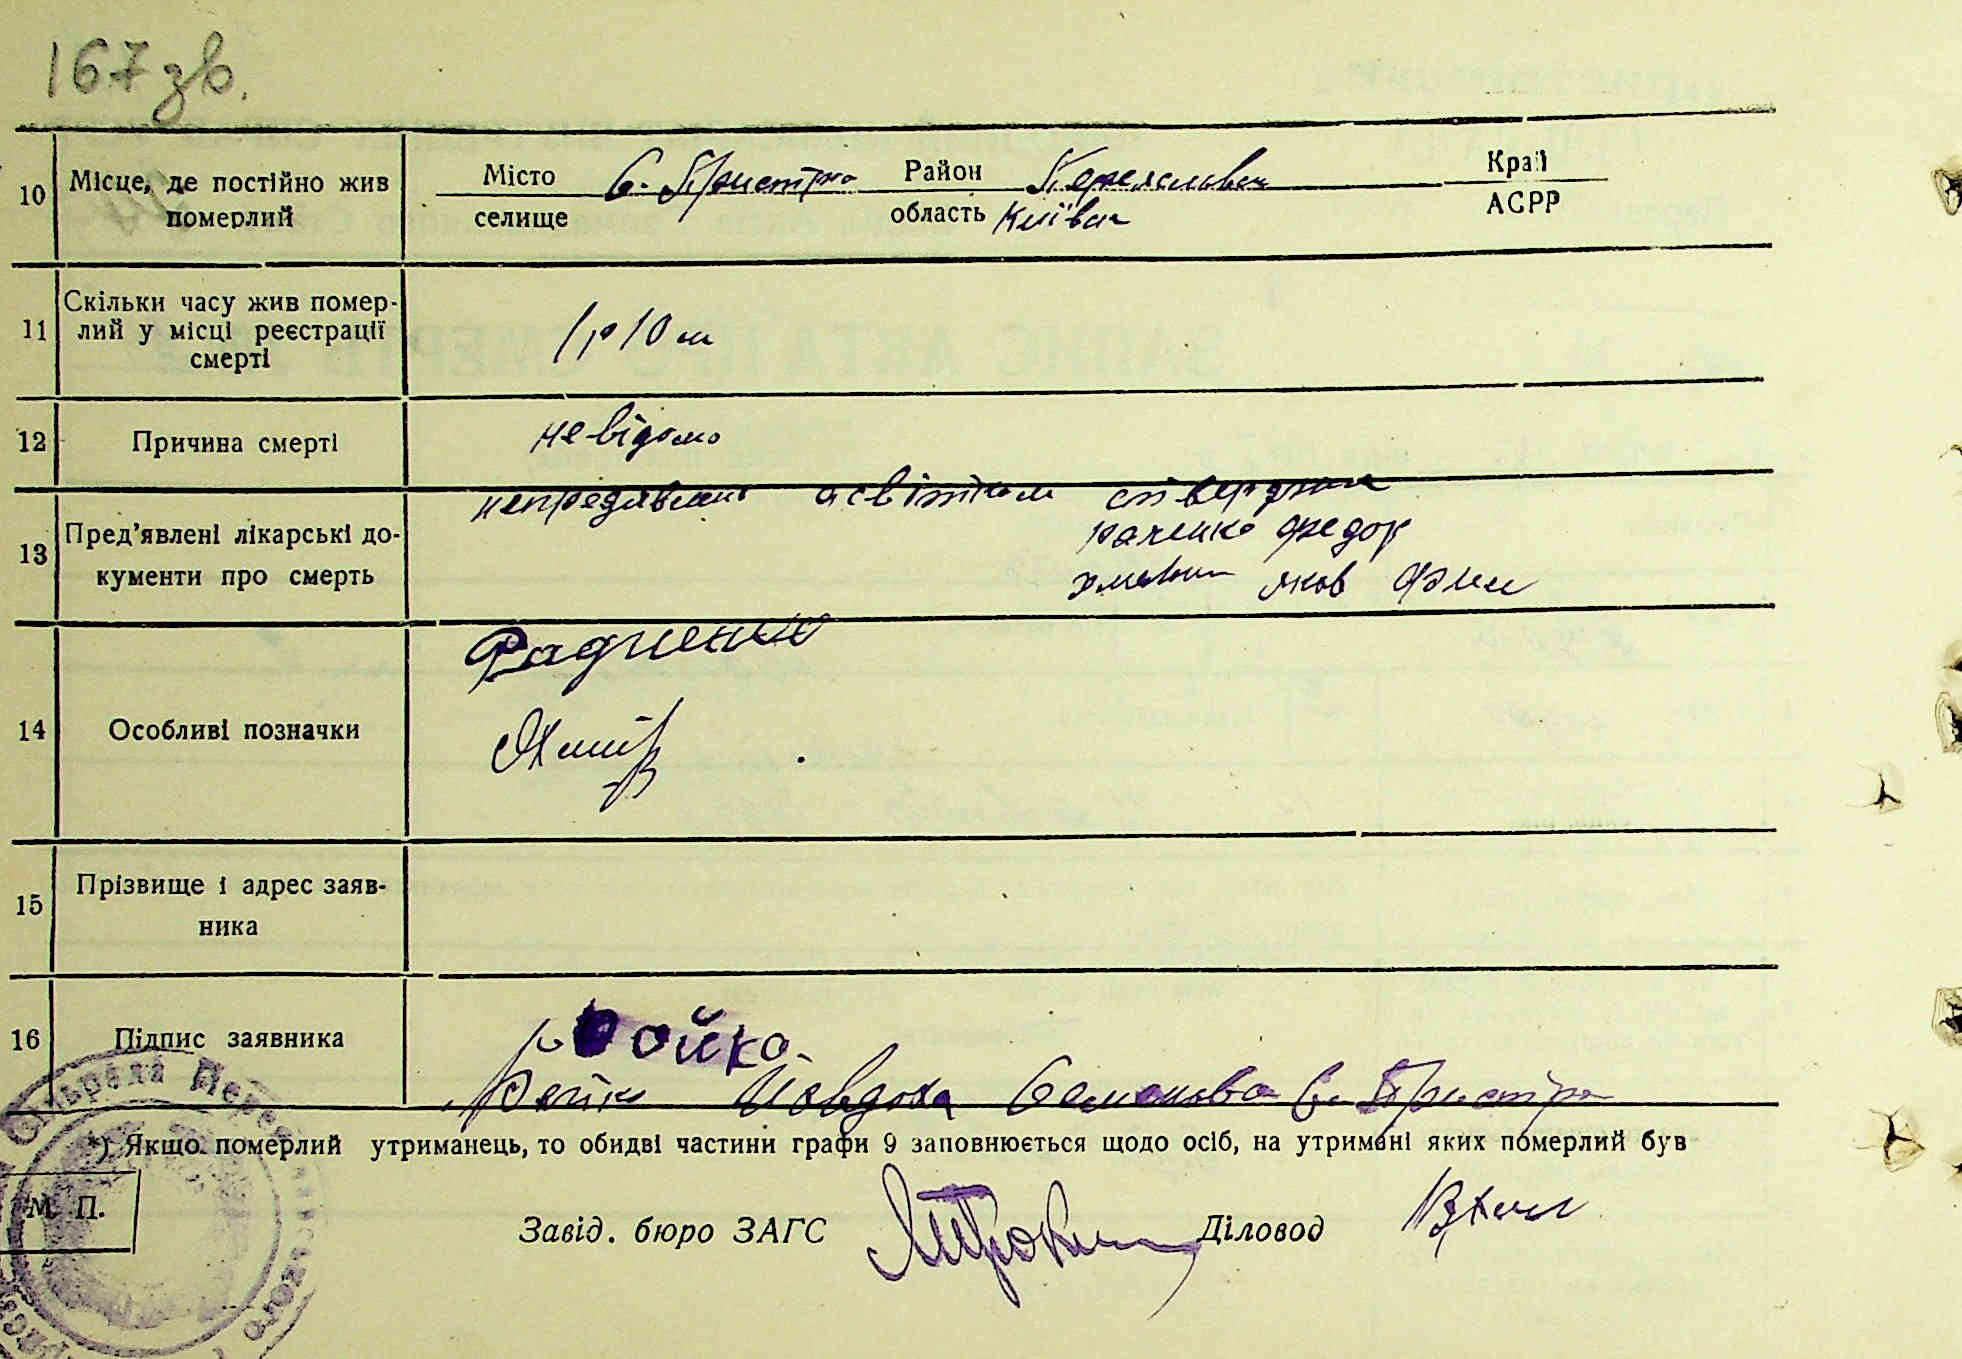 167 зв.
10 Місце, де постійно жив померлий Місто селище с. Пристро Район область Переяславськ Київськ Край АСРР
11 Скільки часу жив померлий у місці реєстрації смерті 1 р 10 м
12 Причина смерті невідомо
13 Пред'явлені лікарські документи про смерть
Федор
Яков
14 Особливі позначки Радченко
15 Прізвище і адрес заявника
16 Підпис заявника Бойко
Бойко Йовдоха Семеновна с. Пристро
*) Якщо померлий утриманець, то обидві частини графи 9 заповнюється щодо осіб, на утримані яких померлий був
М. П.
Завід. бюро ЗАГС Діловод